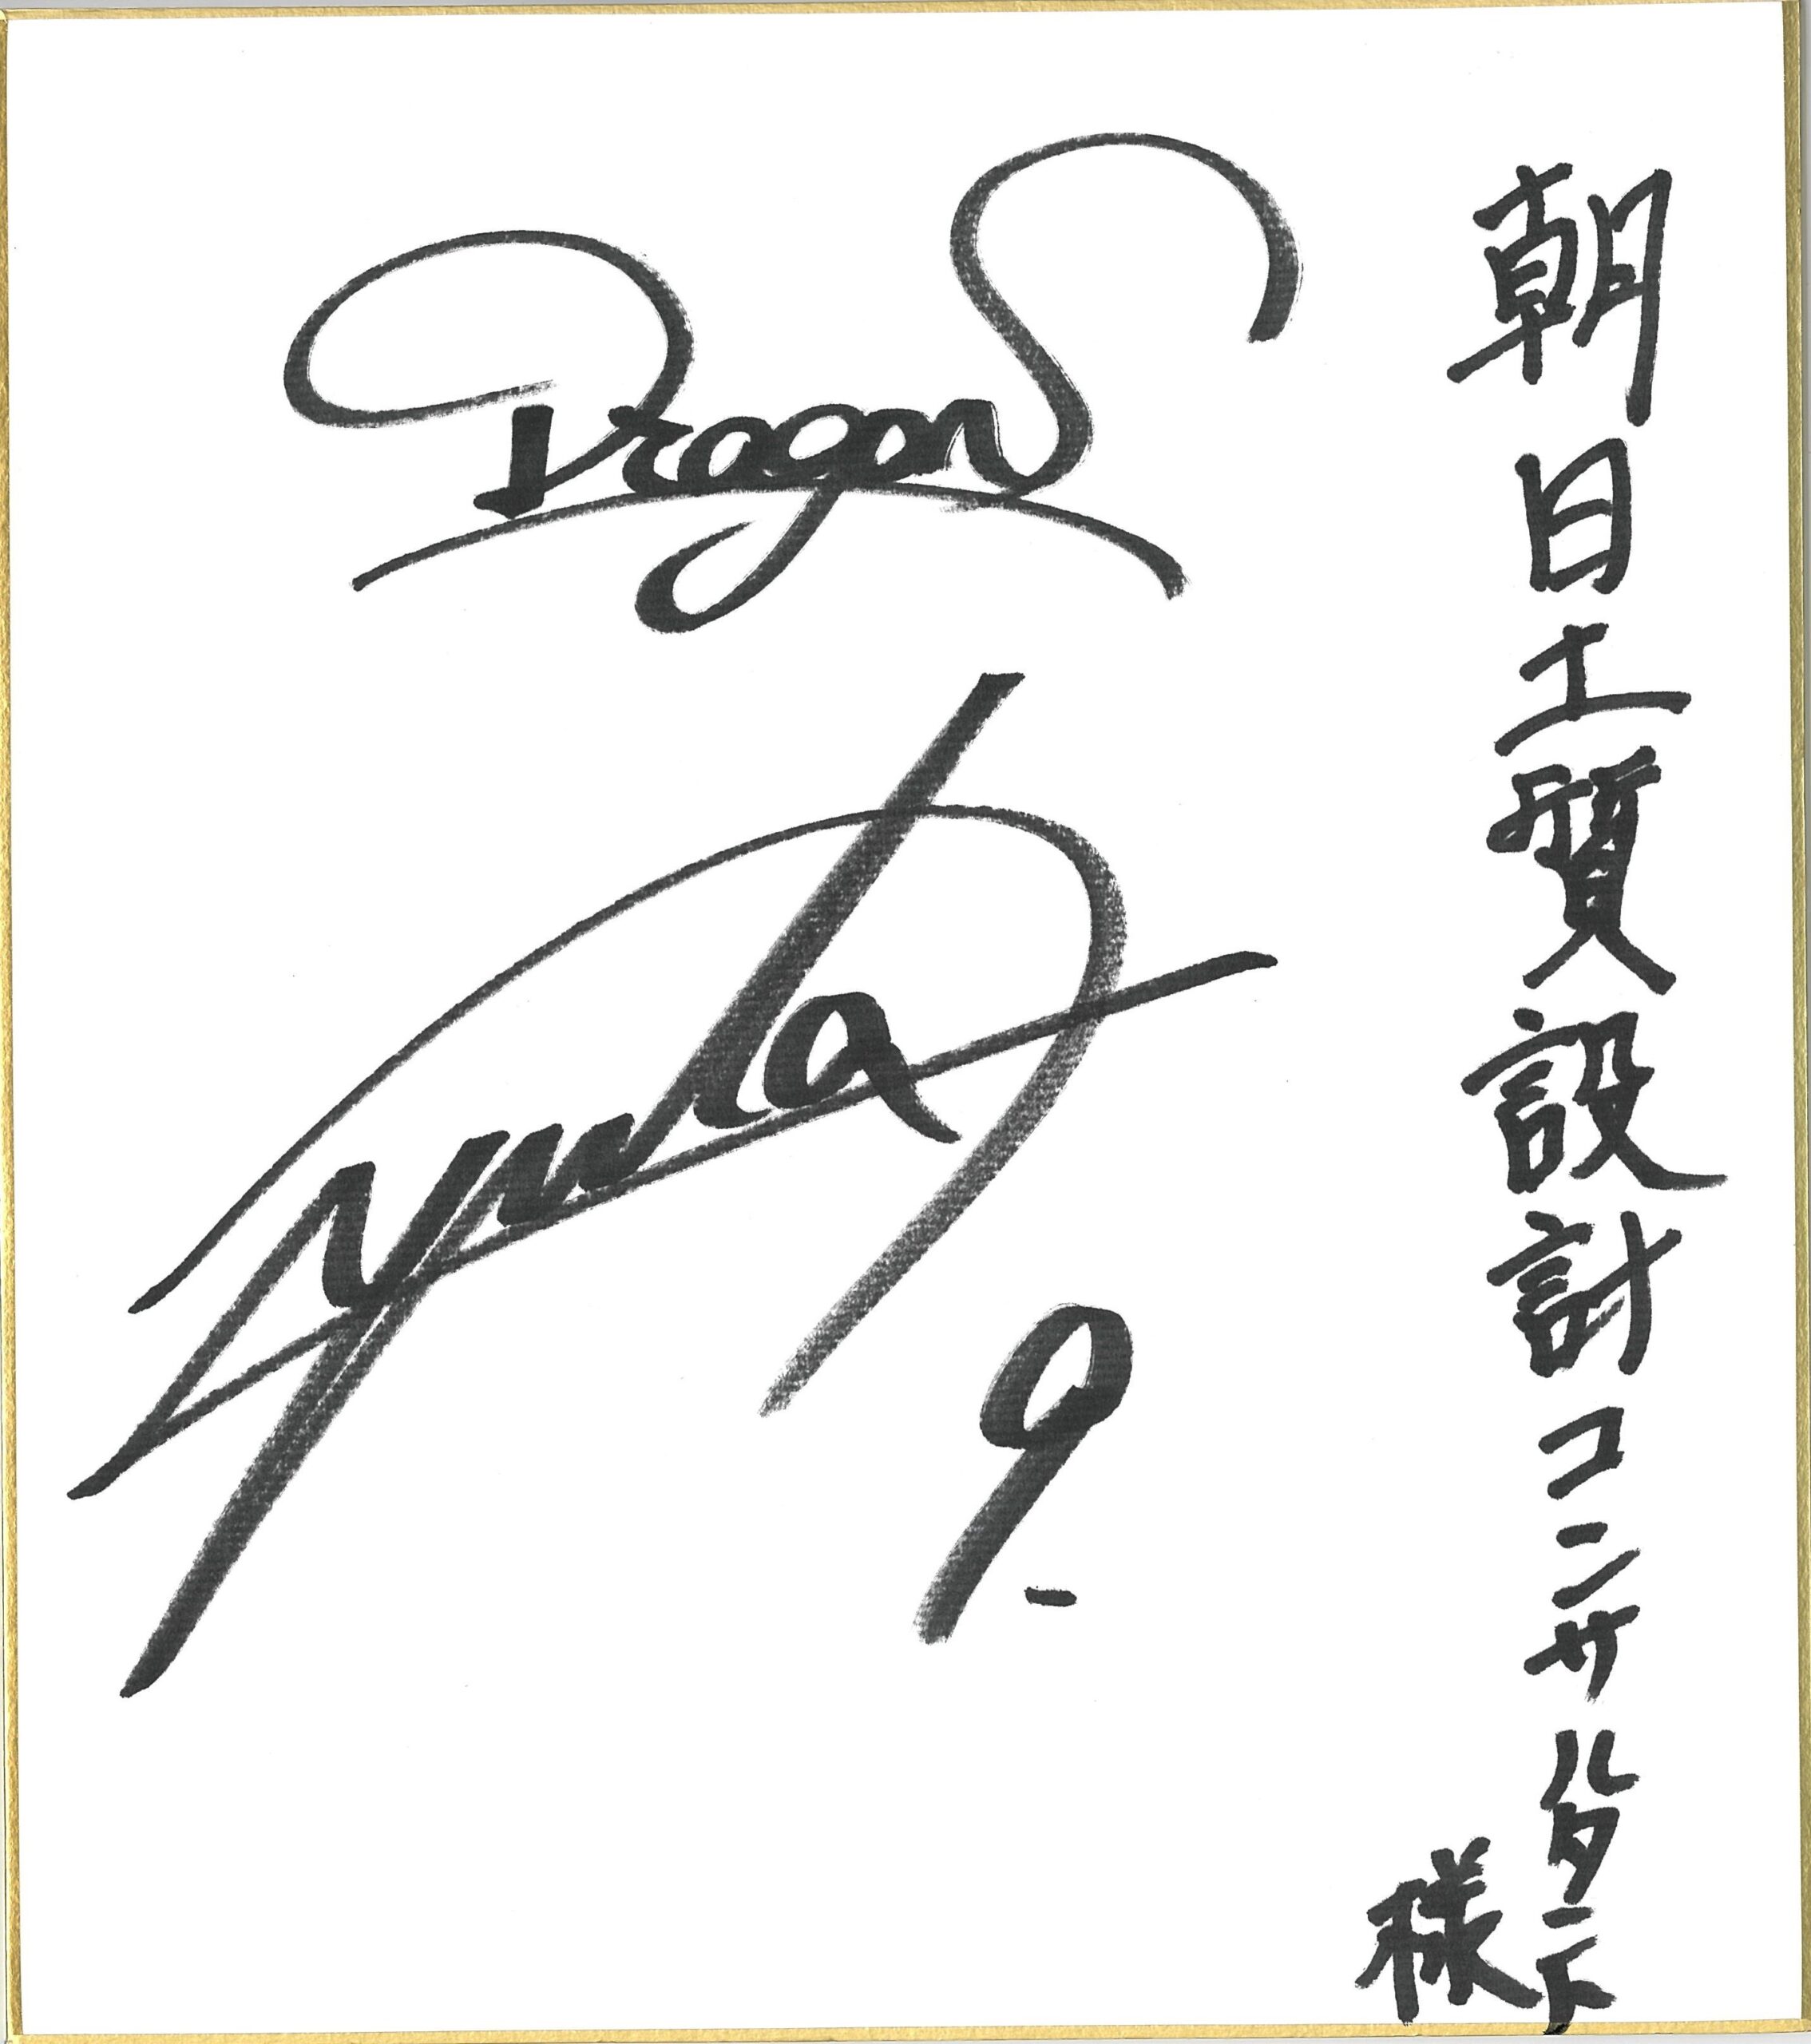 朝日土質設計コンサルタント
様
Dragons
9